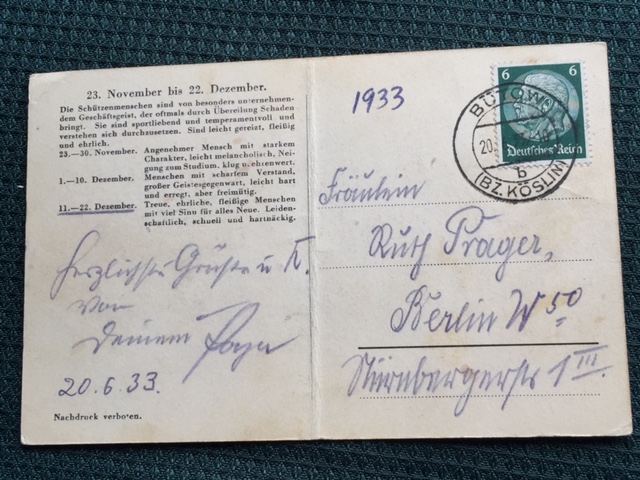 23. November bis 22. Dezember.
Die Schützenmenschen sind von besonders unternehmen-
dem Geschäftsgeist, der oftmals durch Übereilung Schaden
bringt. Sie sind sportliebend und temperamentvoll und
verstehen sich durchzusetzen. Sind leicht gereizt, fleißig
und ehrlich.
23.—30. November. Angenehmer Mensch mit starkem
Charakter, leicht melancholisch, Nei-
gung zum Studium, klug u. ehrenwert.
1.—10. Dezember. Menschen mit scharfem Verstand,
großer Geistesgegenwart, leicht hart
und erregt, aber freimütig.
11.—22. Dezember. Treue, ehrliche, fleißige Menschen
mit viel Sinn für alles Neue. Leiden-
schaftlich, schnell und hartnäckig.
Herzlichste Grüße u K.
von
Deinem Papa
20.6.33.
Nachdruck verboten.
1933
6 6
Deutsches Reich
BÜTOW
20.
b
(BZ. KÖSLIN)
Fräulein
Ruth Prager,
Berlin W 50
Nürnbergerstr 1 III.